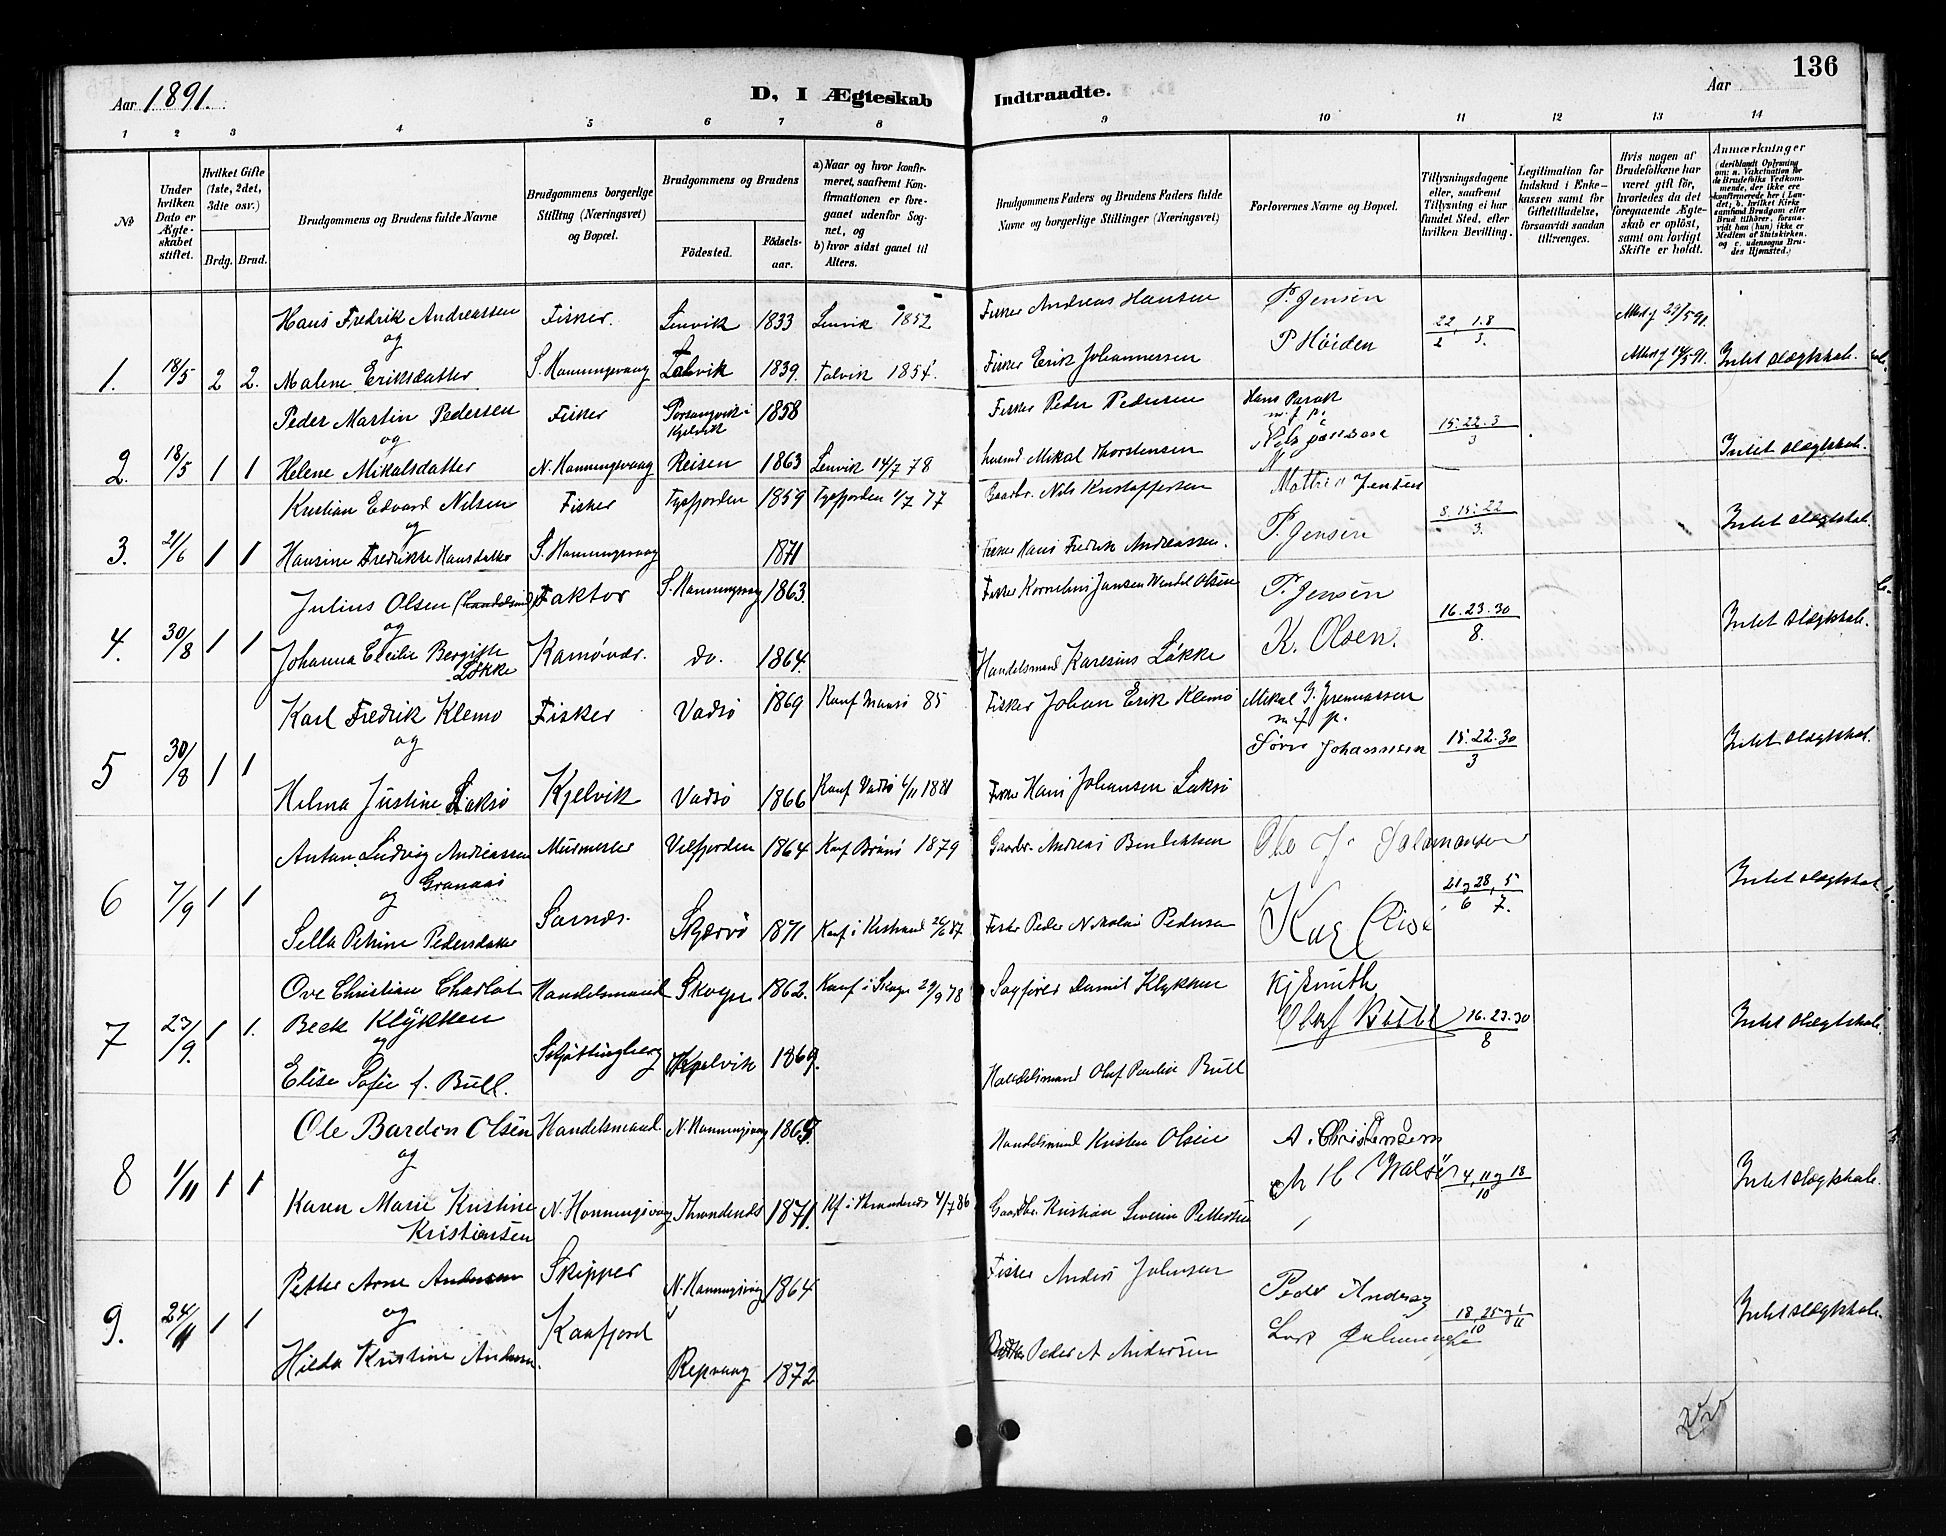 136
Aar 1891.
D, I Ægteskab Indtraadte.
Aar
1 2 3 4 5 6 7 8 9 10 11 12 13 14
No
Under hvilken Dato er Ægteskabet stiftet.
Hvilket Gifte (1ste, 2det, 3die osv.)
Brdg. Brud.
Brudgommens og Brudens fulde Navne
Brudgommens borgerlige Stilling (Næringsvei) og Bopæl.
Brudgommens og Brudens
Fødested.
Fødselsaar.
a) Naar og hvor konfirmeret, saafremt Konfirmationen er foregaaet udenfor Sognet, og
b) hvor sidst gaaet til Alters.
Brudgommens Faders og Brudens Faders fulde Navne og borgerlige Stillinger (Næringsvei)
Forlovernes Navne og Bopæl.
Tillysningsdagene eller, saafremt Tillysning ei har fundet Sted, efter hvilken Bevilling.
Legitimation for Indskud i Enkekassen samt for Giftetilladelse, forsaavidt saadan tiltrænges.
Hvis nogen af Brudefolkene har været gift før, hvorledes da det foregaaende Ægteskab er opløst, samt om lovligt Skifte er holdt.
Anmærkninger
(deriblandt Oplysning om: a. Vakcination for de Brudefolks Vedkommende, der ikke ere konfirmerede her i Landet; b. hvilket Kirkesamfund Brudgom eller Brud tilhører, forsaavidt han (hun) ikke er Medlem af Statskirken. og c. udensogns Brudes Hjemsted.)
Hans Fredrik Andreassen Fisker. Lenvik 1833 Lenvik 1852 Fisker Andreas Hansen P. Jensen
og
1. 18/5 2 2. Malene Eriksdatter S. Honningsvaag Talvik 1839. Talvik 1854. Fisker Erik Johannessen P Høiden Intet slægtskab.
Peder Martin Pedersen Fisker Porsangvik i Kjelvik 1858 Fisker Peder Pedersen Hans Parak
og m. f. p. 15. 22. 3 / 3
2. 18/5 1 1 Helene Mikalsdatter N. Honningsvaag Reisen 1863 Lenvik 14/7 78 Mikal Thorstensen Intet slægtskab.
Kristian Edvard Nilsen Fisker Tysfjorden 1859 Tysfjorden 1/7 77 Gaardbr. Nils Kristoffersen Jensen
og 8. 15. 22 / 3.
3. 21/6 1 1 Hansine Fredrikke Hansdatter S. Honningsvaag 1871 Fisker Hans Fredrik Andreassen. P. Jensen Intet slægtskab.
Julius Olsen Faktor S. Honningsvaag 1863. Fisker Kornelius Jansen Wendel Olsen P. Jensen
og 16. 23. 30 / 8.
4. 30/8 1 1 Johanna Cecilie Bergitte Løkke Kamøvær. do. 1864. Handelsmand Karesius Løkke K. Olsen. Intet slægtskab.
Karl Fredrik Klemo Fisker Vadsø 1869 Konf Maasø 85 Fisker Johan Erik Klemo Mikal J. Jeremiassen
og m f p. 15. 22. 30 / 3
5 30/8 1 1 Johannesen Intet slægtskab.
Helma Justine Laksø Kjelvik Vadsø 1866 Konf Vadsø 6/11 1881 Fisker Hans Johansen Laksø
Anton Ludvig Andreassen Granaas Murmester Velfjorden 1864 Konf Brønø 1879 Gaardbr. Andreas Bendiktsen Ole J. Salamonsen
og 21 og 28, 5 / 6 7.
6 7/9 1 1 Sella Petrine Pedersdatter Sarnæs. Skjærvø 1871 Konf i Kistrand 26/6 87 Fisker Peder Nikolai Pedersen Intet slægtskab
Ove Christian Charlot Handelsmand Skogn 1862. Konf i Skogn 29/9 78 Sagfører Klykken Kj Smith
7 23/9. 1 1. Beck Klykken Olaf Bull 16. 23. 30 / 8 Intet slægtskab.
og
Elise Sofie f. Bull. Skjøttingberg Kjelvik 1869. Handelsmand Olaf Paulin Bull
Ole Bardon Olsen Handelsmand. N. Honningsvaag 1865 Handelsmand Kristen Olsen A. Christensen
og
8 1/11 1 1 4, 11 og 18 / 10 Intet slægtskab.
Karen Marie Kristine Kristiansen N. Honningsvaag Throndenæs 1871. Kf i Throndenæs 4/7 86 Gaardbr. Kristian Severin Pettersen
Petter Arne Andersen Skipper N. Honningsvaag 1864 Fisker Anders Johnsen
og
9. 24/11 1 1 Kaafjord 18, 25 og 1 / 10 11 Intet slægtskab.
Hilda Kristine Andersen Repvaag 1872 Peder A Andersen